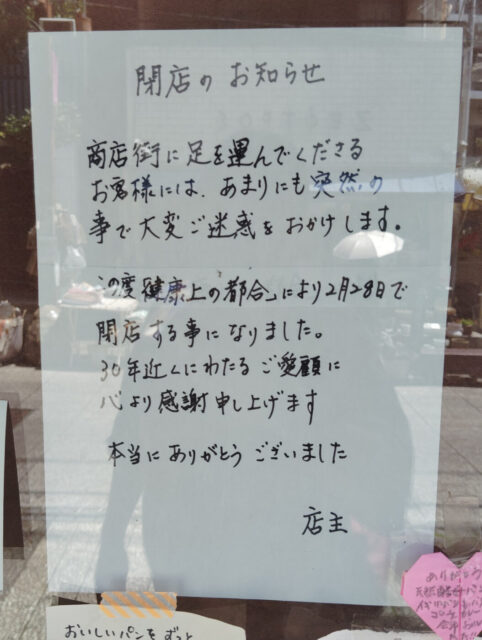 閉店のお知らせ
商店街に足を運んでくださる
お客様には、あまりにも突然の
事で大変ご迷惑をおかけします。
この度「健康上の都合」により2月28日で
閉店する事になりました。
30年近くにわたるご愛顧に
心より感謝申し上げます
本当にありがとうございました
店主
おいしいパンをずっと
ありがとう
天然酵母パン